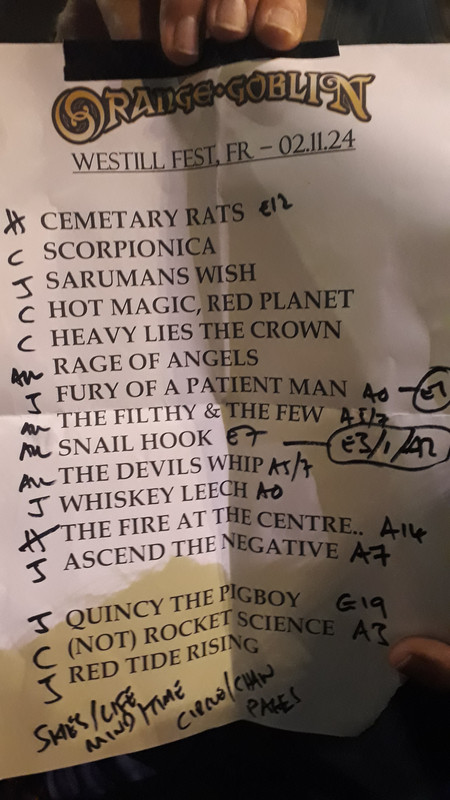 ORANGE·GOBLIN
WESTILL FEST, FR – 02.11.24
A CEMETARY RATS E12
C SCORPIONICA
J SARUMANS WISH
C HOT MAGIC, RED PLANET
C HEAVY LIES THE CROWN
AM RAGE OF ANGELS
J FURY OF A PATIENT MAN A0 — E7
AM THE FILTHY & THE FEW A5/7
AM SNAIL HOOK E7 — E3/1/A12
AM THE DEVILS WHIP A5/7
J WHISKEY LEECH A0
A THE FIRE AT THE CENTRE.. A14
J ASCEND THE NEGATIVE A7
J QUINCY THE PIGBOY E19
C (NOT) ROCKET SCIENCE A3
J RED TIDE RISING
SKIES/LIFE
MIND/TIME